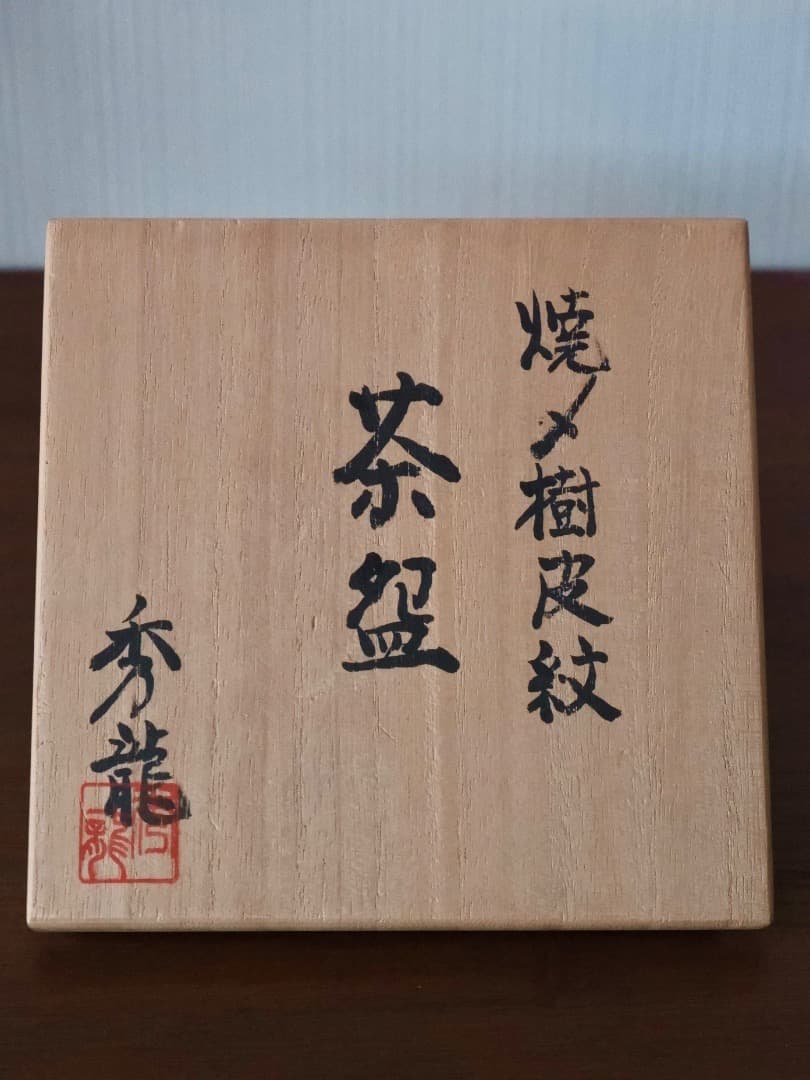 焼〆樹皮紋
茶盌
秀龍